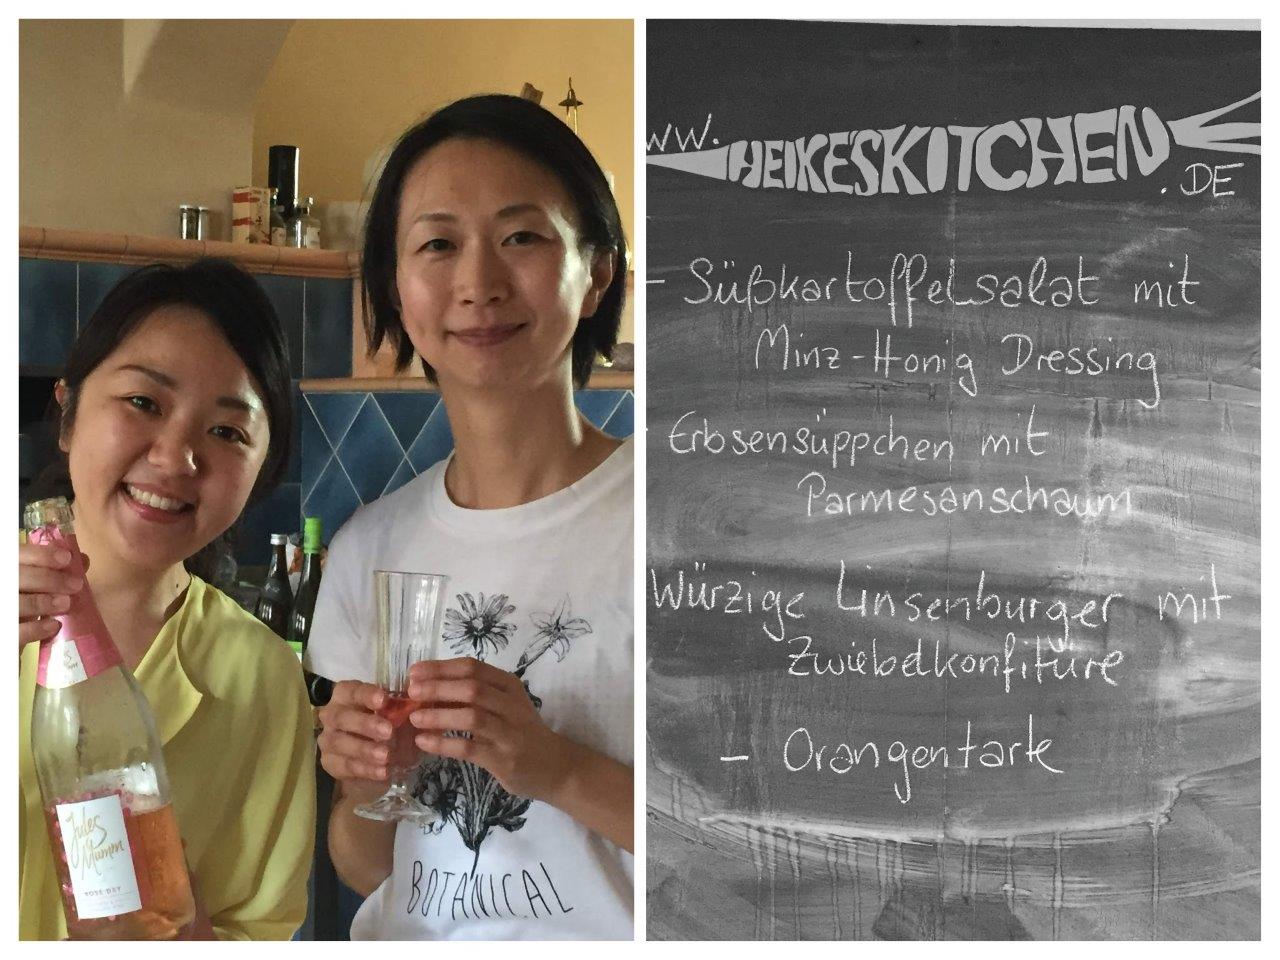 Jules
Mumm
ROSÉ DRY
BOTANICAL
WW.
HEIKE'SKITCHEN
.DE
- Süßkartoffelsalat mit
Minz-Honig Dressing
- Erbsensüppchen mit
Parmesanschaum
Würzige Linsenburger mit
Zwiebelkonfitüre
- Orangentarte